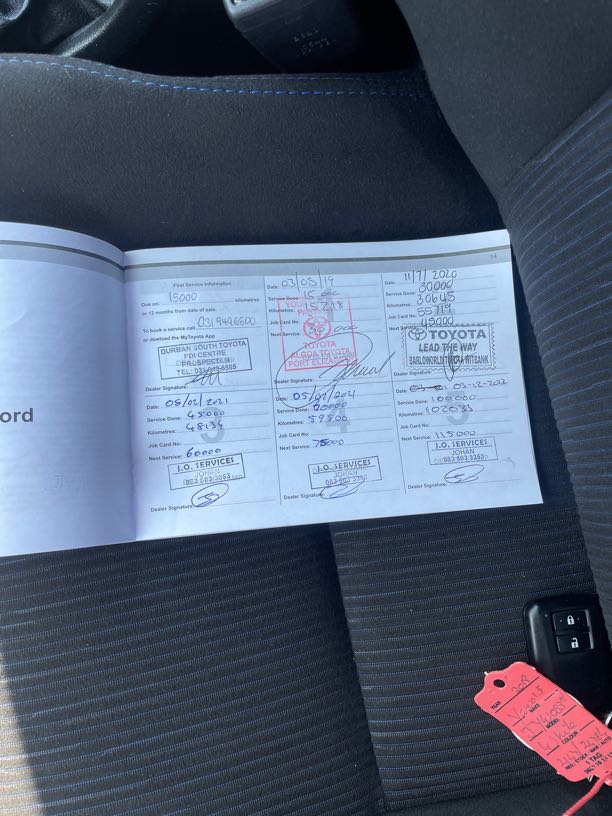 ord
14
First Service Information
Due on: 15000 Kilometres:
or 12 months from date of sale.
To book a service call 031 949 6500
or dowload the MyToyota App
DURBAN SOUTH TOYOTA
PDI CENTRE
PROSPECTON
Dealer Signature:
Date: 03/05/19
Service Done: 15 000
Kilometres: 15218
Job Card No:
Next Service: 30 000
TOYOTA
ALGOA TOYOTA
PORT ELIZABETH
Dealer Signature:
Date: 11/7/2020
Service Done: 30000
Kilometres: 30645
Job Card No: 55719
Next Service: 45000
TOYOTA
LEAD THE WAY
BARLOWORLD TOYOTA WITBANK
Dealer Signature:
3
Date: 05/02/2021
Service Done: 45000
Kilometres: 48134
Job Card No:
Next Service: 60000
J.O. SERVICES
JOHAN
083 503 3353
Dealer Signature:
4
Date:
Service Done:
Kilometres: 59500
Job Card No:
Next Service: 75000
J.O. SERVICES
JOHAN
083 503 3353
Dealer Signature:
Date: 03-12-2022
Service Done: 100000
Kilometres: 102033
Job Card No:
Next Service: 115000
J.O. SERVICES
JOHAN
083 503 3353
Dealer Signature:
YEAR 2018
MAKE
MODEL
COLOUR White